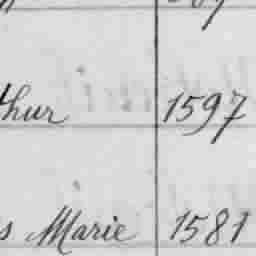 thur 1597
s Marie 1581